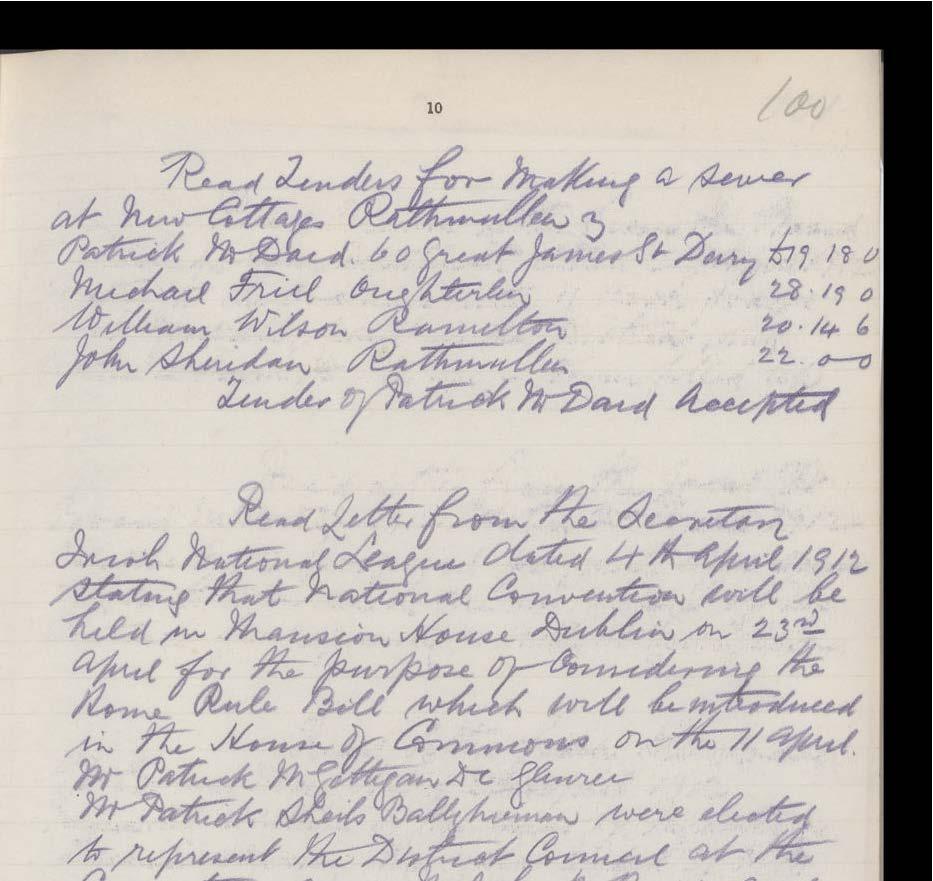 10
100
Read Tenders for Making a sewer
at New Cottages Rathmullen
Patrick McDaid. 60 Great James St Derry £19.18 0
Michael Friel Oughterlin 28.19 0
William Wilson Ramelton 20.14 6
John Sheridan Rathmullen 22. 0-0
Tender of Patrick McDaid Accepted
Read Letter from the Secretary
Irish National League dated 4th April 1912
stating that National Convention will be
held in Mansion House Dublin on 23rd
April for the purpose of Considering the
Home Rule Bill which will be introduced
in the House of Commons on the 11 April.
Mr Patrick McGettigan DC
Mr Patrick Sheils were elected
to represent the District Council at the